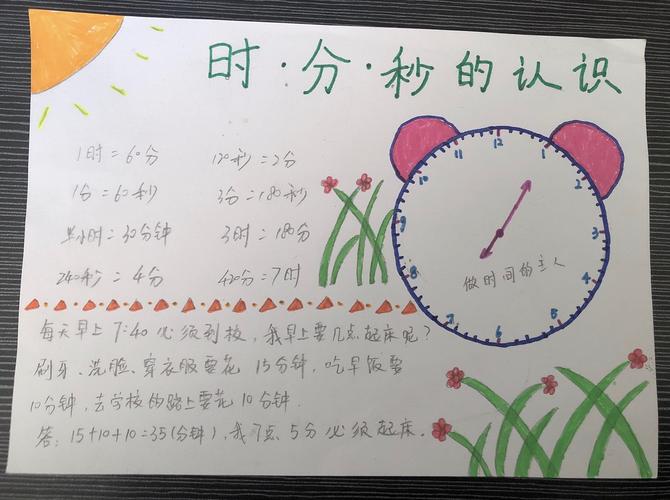 时·分·秒的认识
1时=60分 120秒=2分
1分=60秒 3分=180秒
半小时=30分钟 3时=180分
240秒=4分 420分=7时
12
1
2
3
4
6
7
8
9
10
11
做时间的主人
每天早上7:40必须到校,我早上要几点起床呢?
刷牙、洗脸、穿衣服要花15分钟,吃早饭要
10分钟,去学校的路上要花10分钟.
答:15+10+10=35(分钟),我7点5分必须起床。